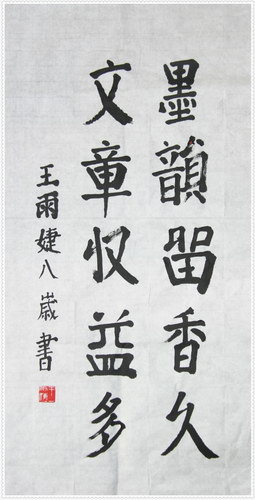 墨韻畱香久
文章収益多
王爾婕八歲書